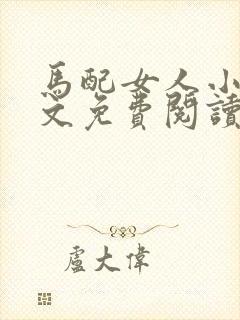 馬配女人小
文免費閱讀
盧大偉